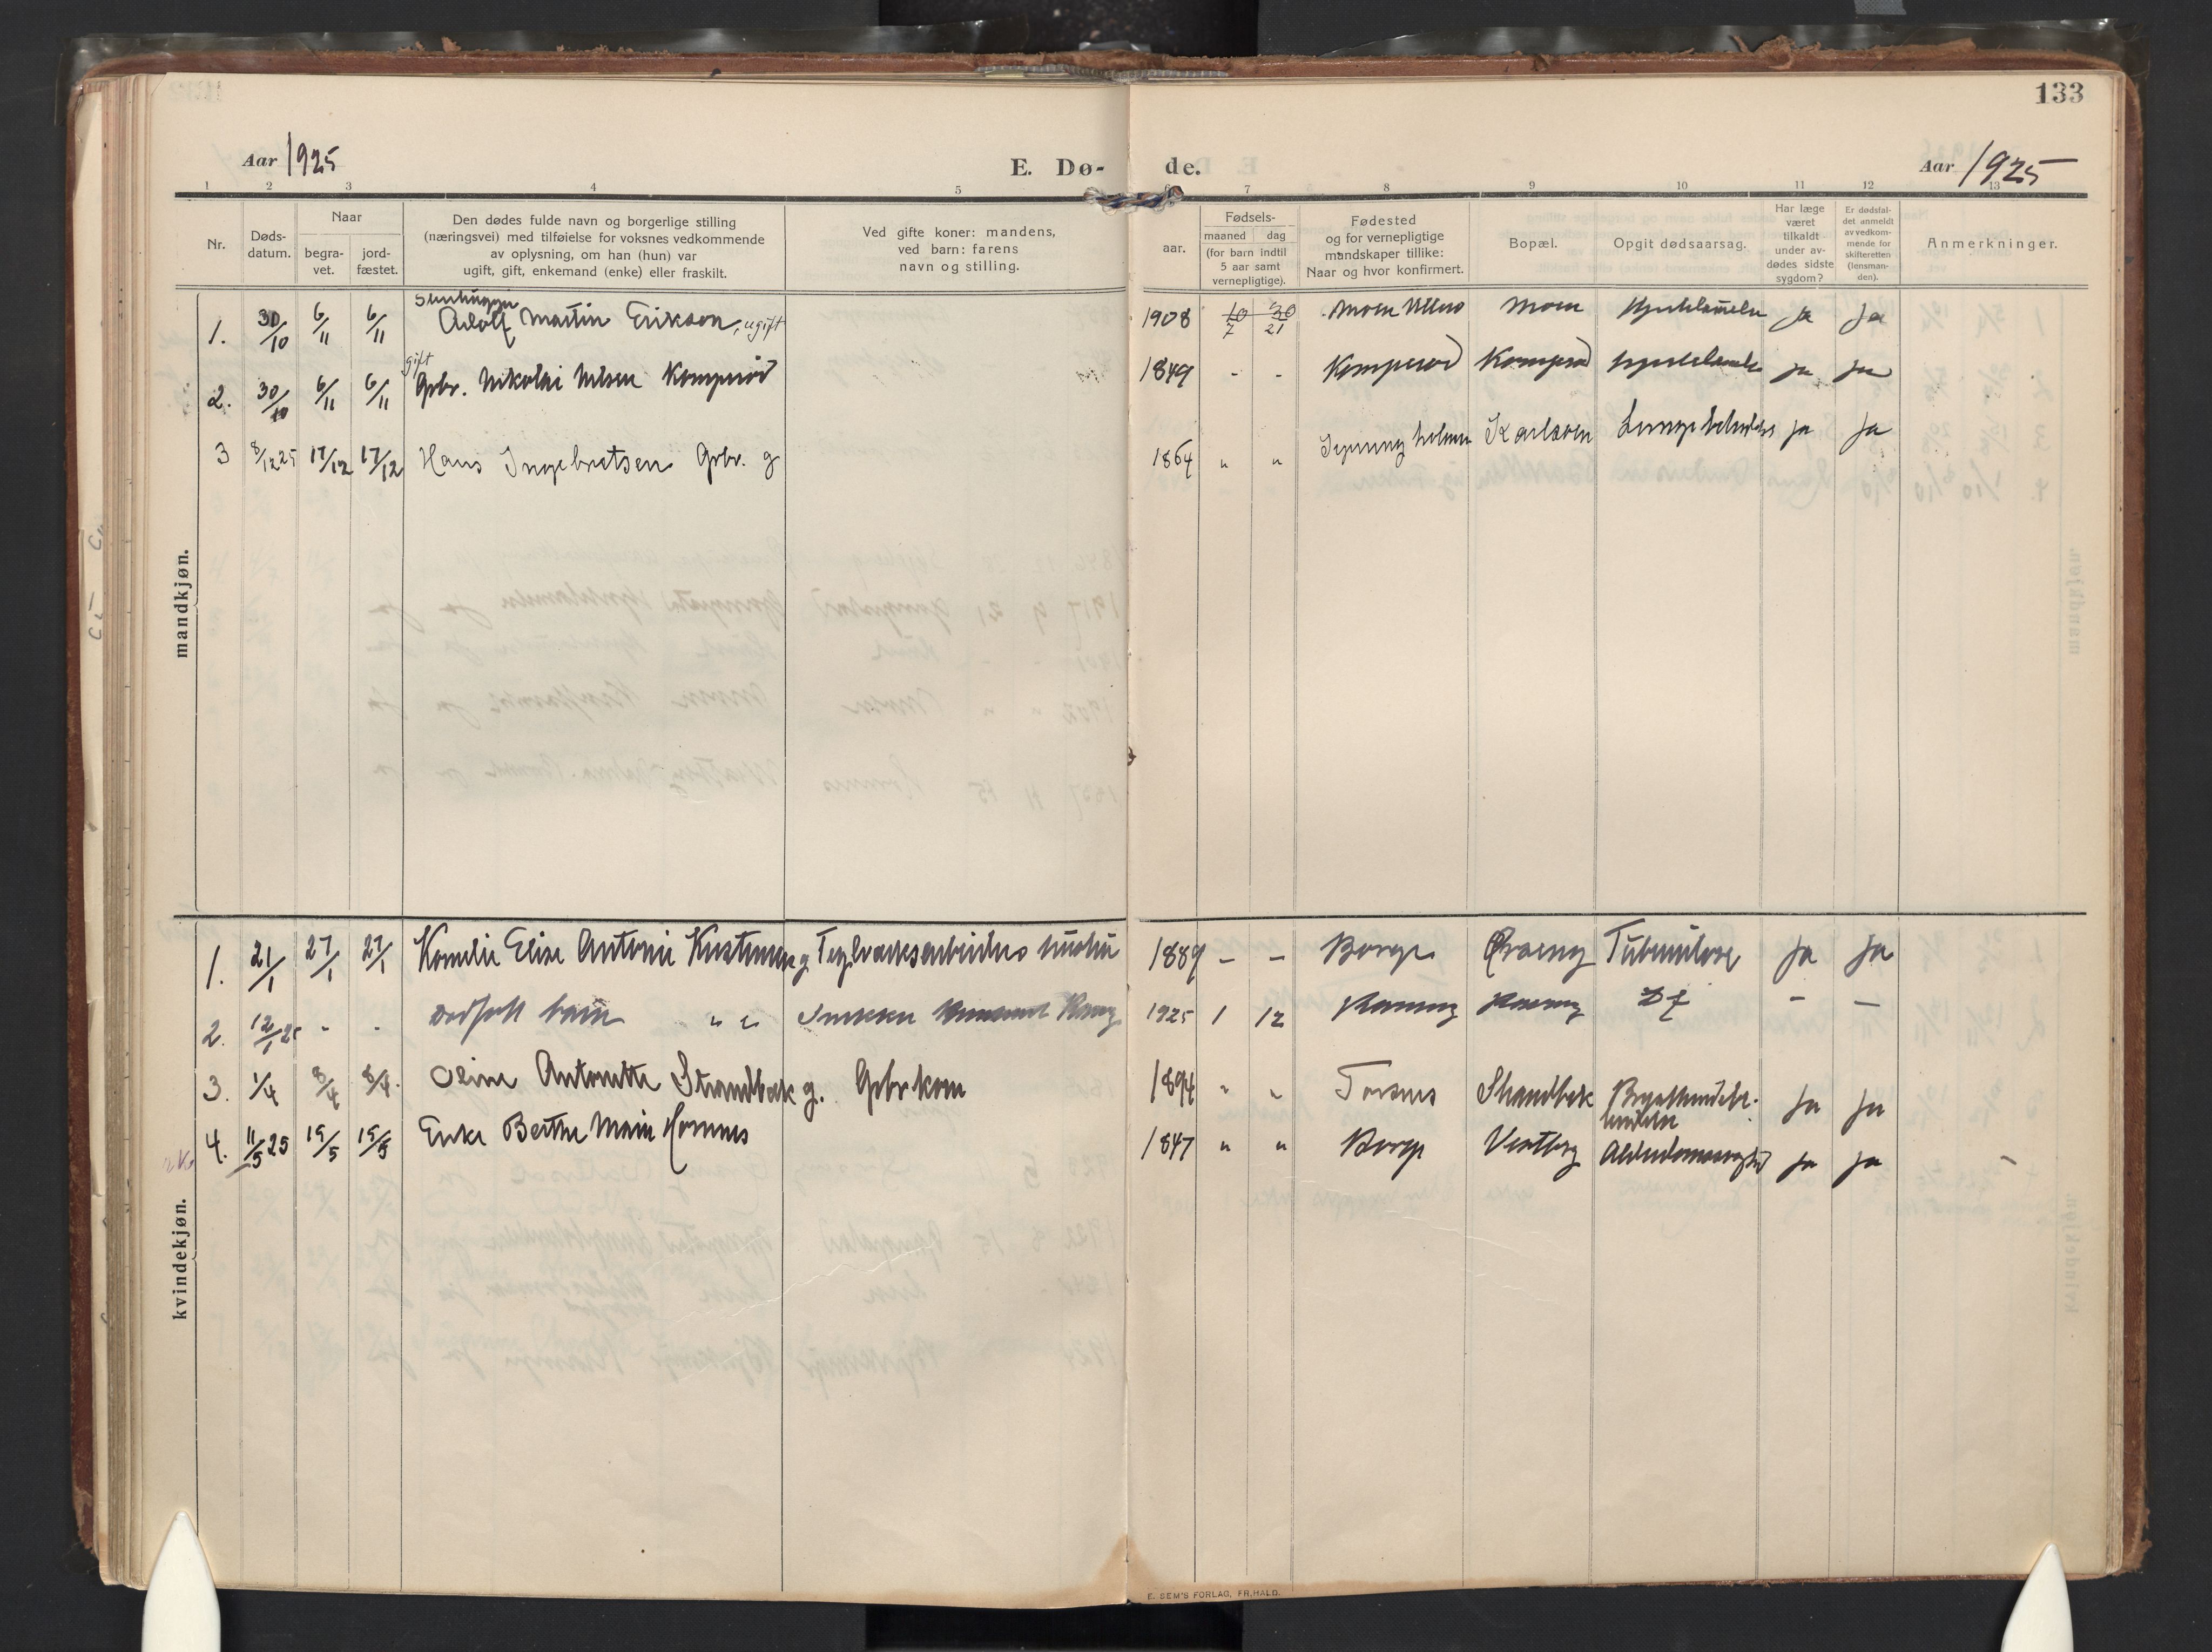 133
Aar 1925 E. Dø- de. Aar 1925
1 2 3 4 5 6 7 8 9 10 11 12 13
Nr.
Døds-
datum.
Naar
begra-
vet.
jord-
fæstet.
Den dødes fulde navn og borgerlige stilling
(næringsvei) med tilføielse for voksnes vedkommende
av oplysning, om han (hun) var
ugift, gift, enkemand (enke) eller fraskilt.
Ved gifte koner: mandens,
ved barn: farens
navn og stilling.
Fødsels-
aar.
maaned dag
(for barn indtil
5 aar samt
vernepligtige).
Fødested
og for vernepligtige
mandskaper tillike:
Naar og hvor konfirmert.
Bopæl.
Opgit dødsaarsag.
Har læge
været
tilkaldt
under av-
dødes sidste
sygdom?
Er dødsfal-
det anmeldt
av vedkom-
mende for
skifteretten
(lensman-
den).
Anmerkninger.
mandkjøn.
Stenhugger
1. 30/10 6/11 6/11 Adolf Martin Erikson, ugift 1908 10 30 Moen Moen ja ja
7 21
gift
2. 30/10 6/11 6/11 Gbr. Nikolai Nilsen Komperød 1849 - - Komperød Komperød ja ja
3 8/12 25 17/12 17/12 Hans Ingebretsen Gbr. g 1864 " " Karlsøen ja ja
kvindekjøn.
1. 21/1 27/1 27/1 Kornelie Elise Antonie g Teglverksarbeiders hustru 1889 - - Borge Tuberkulose ja ja
2. 12/1 25 - - dødfødt barn " " 1925 1 12 Df - -
3. 1/4 8/4 8/4. Oline Antonette Strandbæk g. Gbrkone 1894 " " Torsnes Strandbæk ja ja
4. 11/5 25 15/5 15/5 Enke Berthe Marie Hornnes 1847 " " Borge ja ja
E. SEM'S FORLAG, FR.HALD.